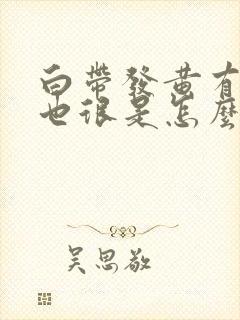 白帶發黃有
也很是怎麼
吳思敬